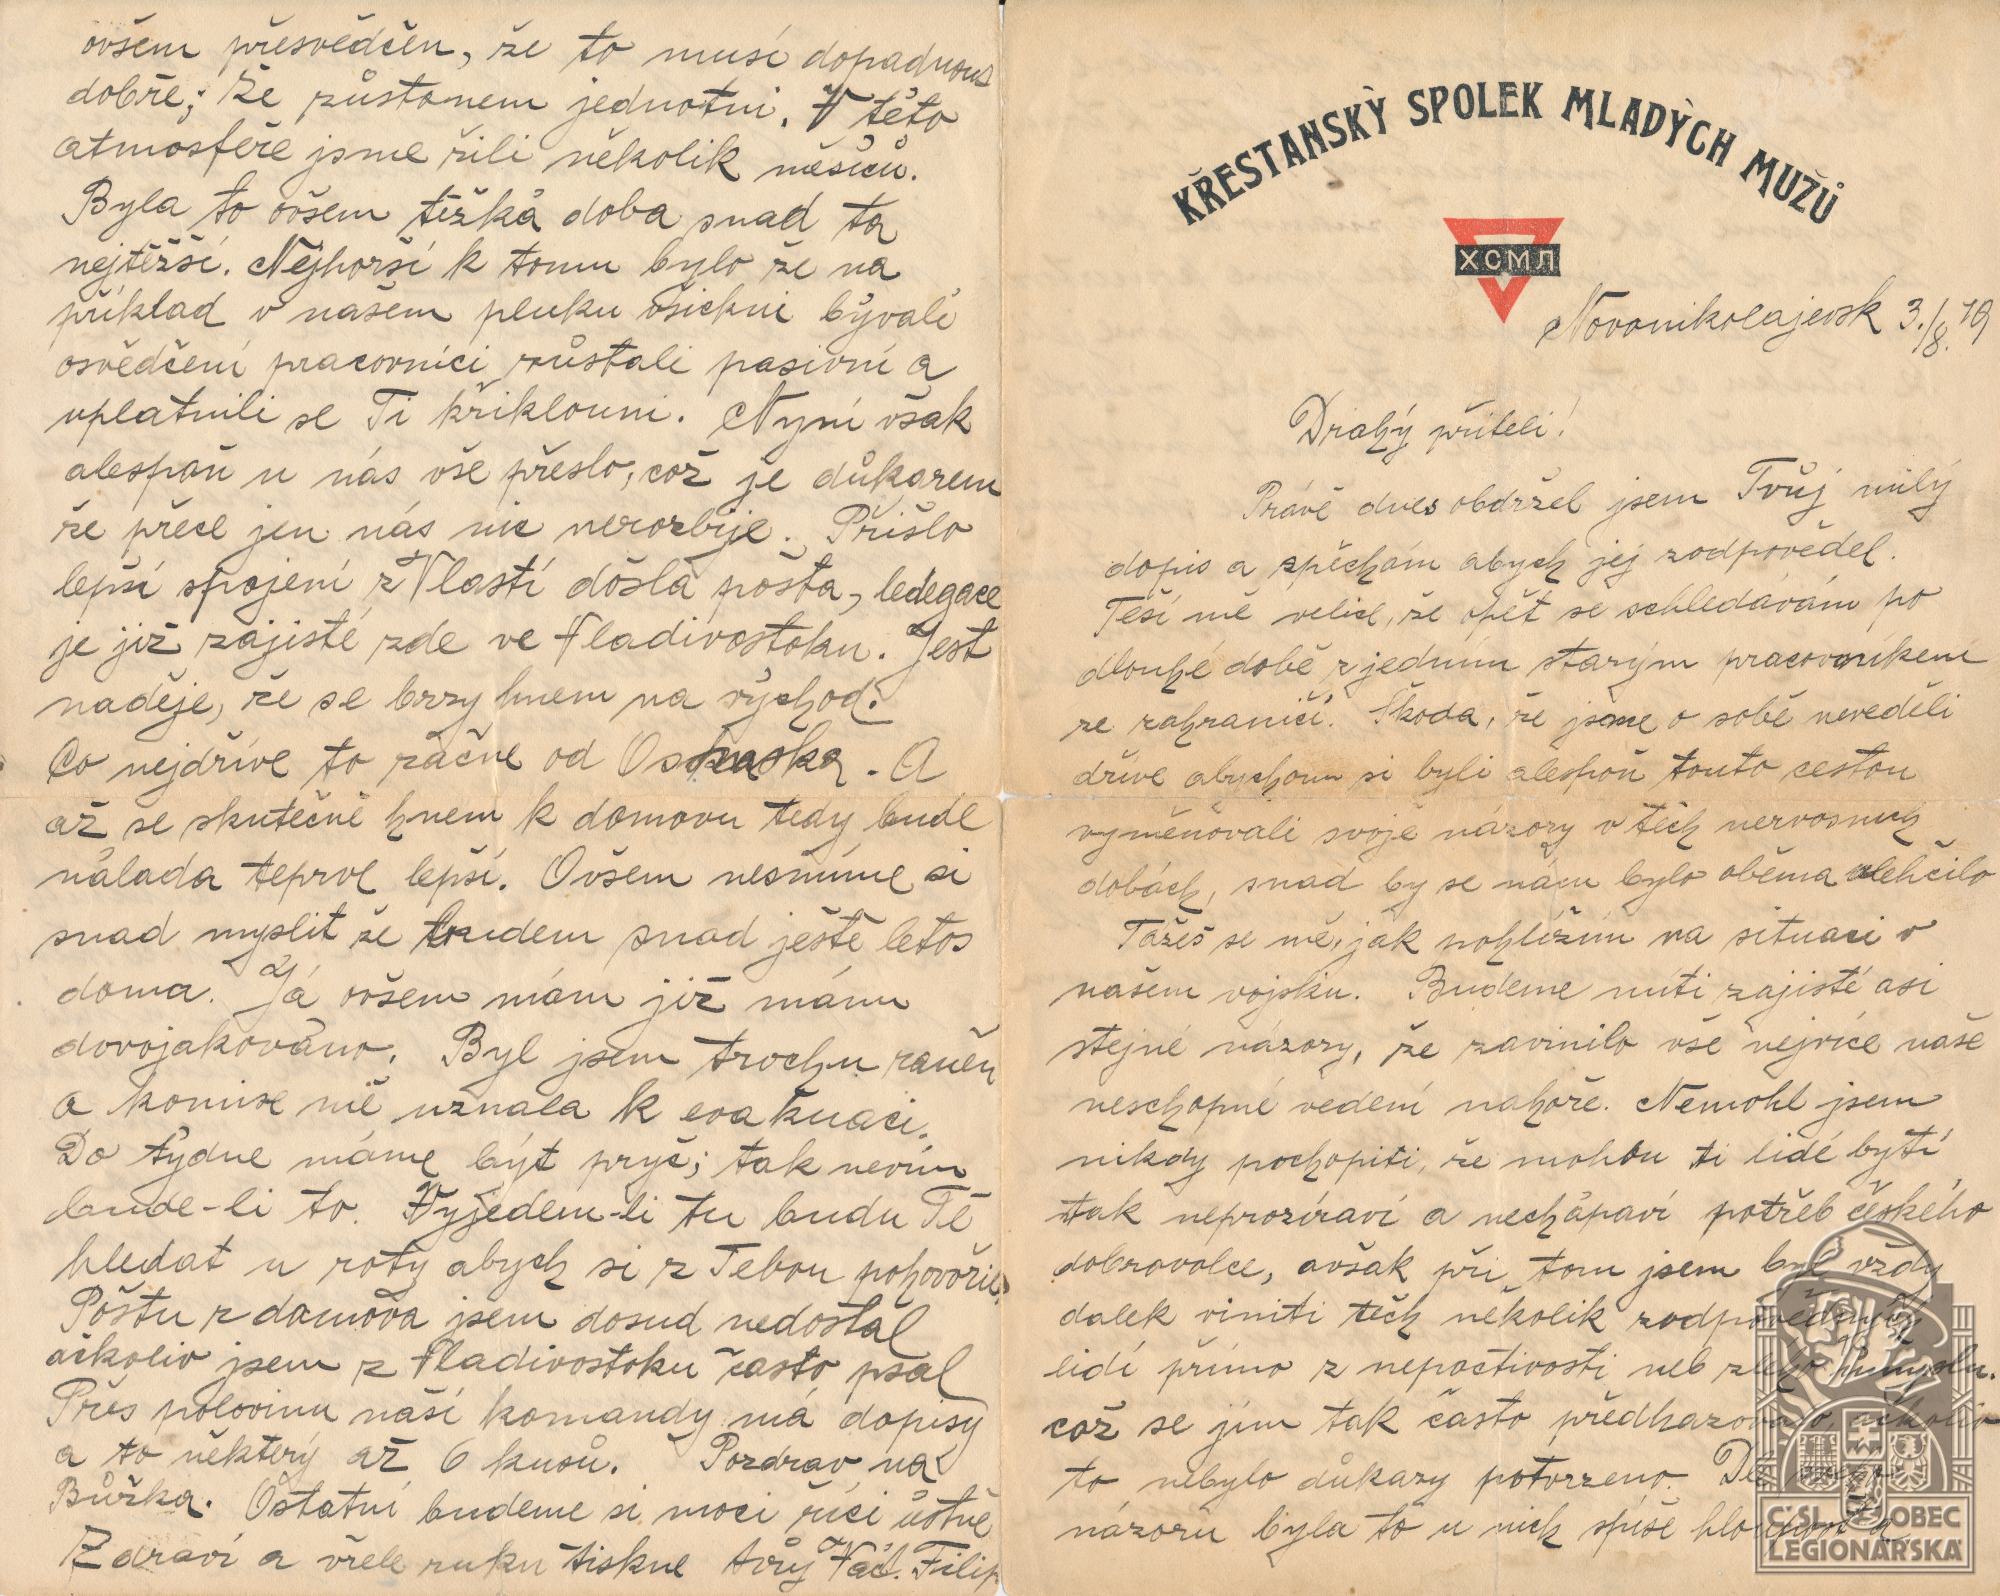 KŘESTANSKÝ SPOLEK MLADÝCH MUŽŮ
ХСМЛ
Novonikolajevsk 3./8. 19
Drahý příteli!
Právě dnes obdržel jsem Tvůj milý
dopis a spěchám abych jej zodpověděl.
Těší mě velice, že opět se schledávám po
dlouhé době z jedním starým pracovníkem
ze zahraničí. Škoda, že jsme o sobě nevěděli
dříve abychom si byli alespoň touto cestou
vyměňovali svoje názory v těch nervosních
dobách, snad by se nám bylo oběma ulehčilo
Tážeš se mě, jak pohlížím na situaci v
našem vojsku. Budeme míti zajisté asi
stejné názory, že zavinilo vše nejvíce naše
neschopné vedení nahoře. Nemohl jsem
nikdy pochopiti, že mohou ti lidé býti
tak neprozíraví a nechápaví potřeb českého
dobrovolce, avšak při tom jsem byl vždy
dalek viniti těch několik zodpovědných
lidí přímo z nepoctivosti neb zlého úmyslu.
což se jim tak často předhazovalo, ačkoliv
to nebylo důkazy potvrzeno. Dle mého
názoru byla to u nich spíše hloupost a
ovšem přesvědčen, že to musí dopadnout
dobře; že zůstanem jednotni. V této
atmosféře jsme žili několik měsíců.
Byla to ovšem těžká doba snad ta
nejtěžší. Nejhorší k tomu bylo že na
příklad v našem pluku všickni bývalí
osvědčení pracovníci zůstali pasivní a
uplatnili se Ti křiklouni. Nyní však
alespoň u nás vše přešlo, což je důkazem
že přece jen nás nic nerozbije. Přišlo
lepší spojení z Vlastí došla pošta, ledegace
je již zajisté zde ve Vladivostoku. Jest
naděje, že se brzy hnem na východ.
Co nejdříve to začne od Omska. A
až se skutečně hnem k domovu tedy bude
nálada teprve lepší. Ovšem nesmíme si
snad myslit že budem snad ještě letos
doma. Já ovšem mám již mám
dovojakováno. Byl jsem trochu raněn
a komise mě uznala k evakuaci.
Do týdne máme být pryč; tak nevím
bude-li to. Vyjedem-li tu budu Tě
hledat u roty abych si z Tebou pohovořil.
Poštu z domova jsem dosud nedostal
ačkoliv jsem z Vladivostoku často psal
Přes polovinu naší komandy má dopisy
a to některý až 6 kusů. Pozdrav na
Bůžka. Ostatní budeme si moci říci ústně
Zdraví a vřele ruku tiskne tvůj Václ. Filip
ČSL. OBEC
LEGIONÁŘSKÁ